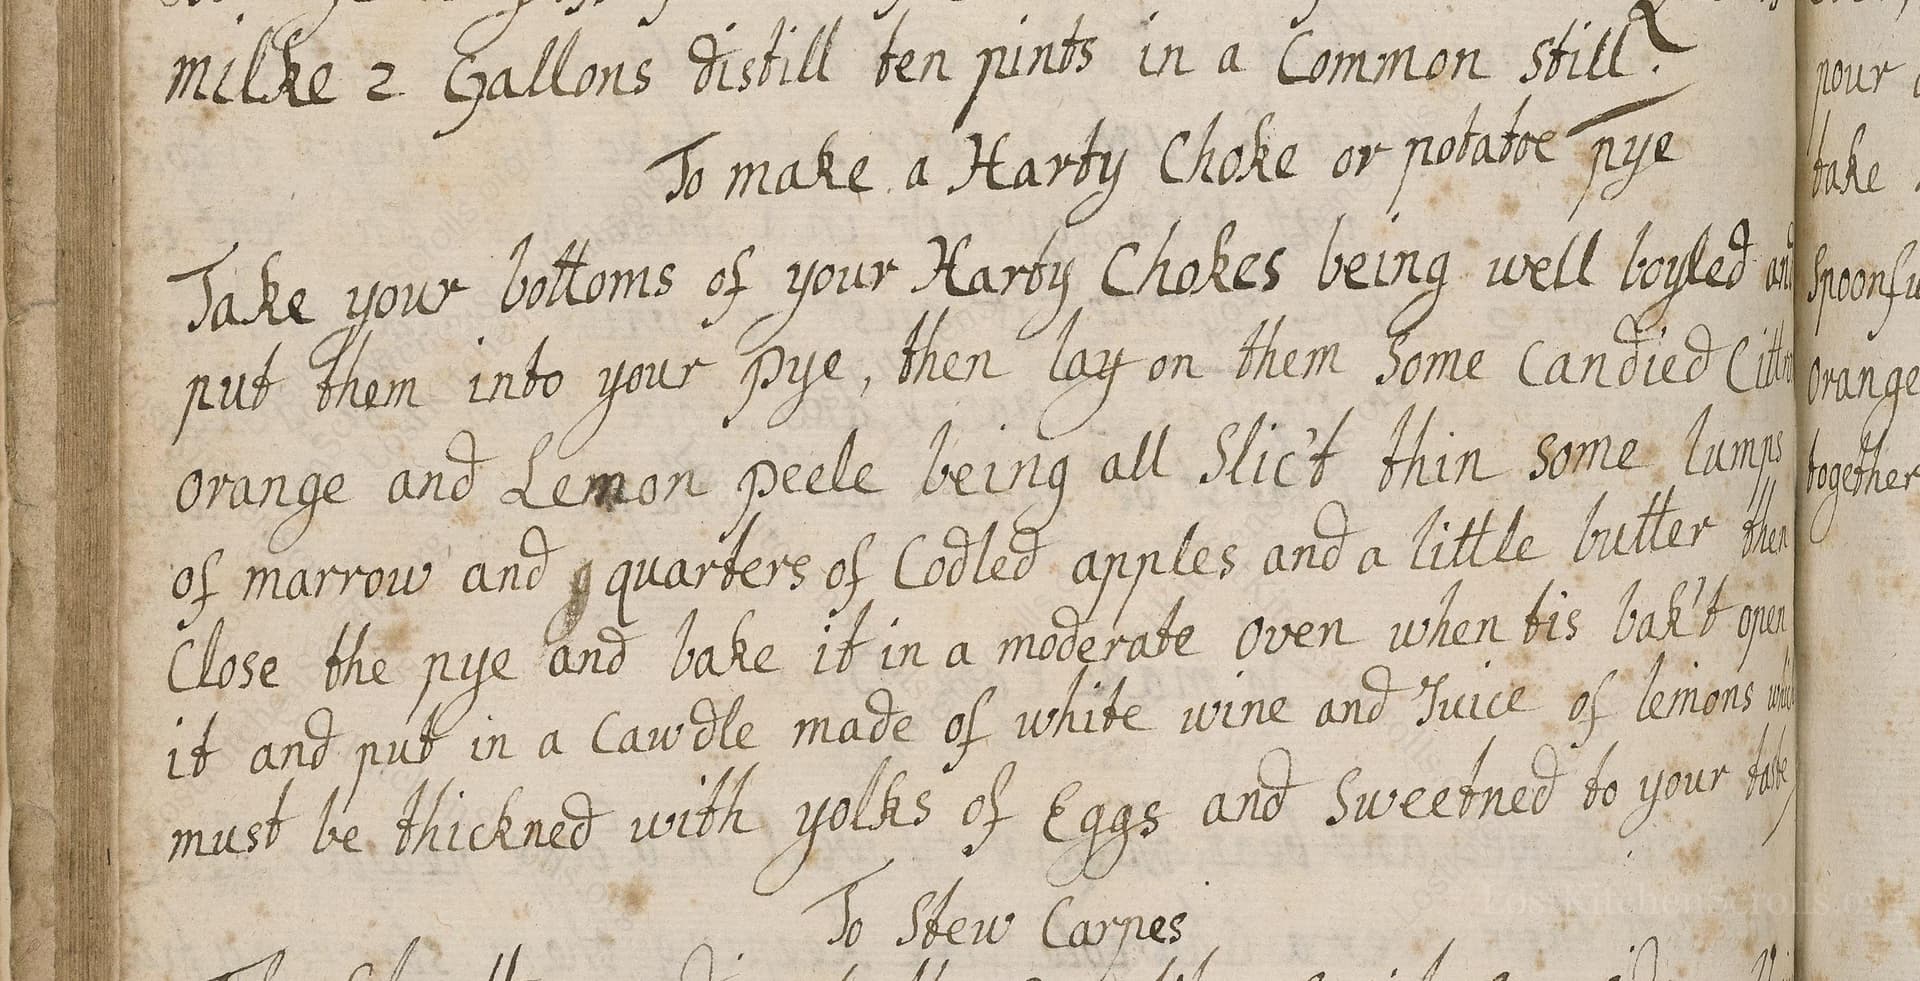 milke 2 Gallons distill ten pints in a Common still.
To make a Harty Choke or potatoe pye
Take your bottoms of your Harty Chokes being well boyled and
put them into your pye, then lay on them Some Candied
orange and Lemon peele being all Slic't thin some lumps
of marrow and quarters of Codled apples and a little butter then
Close the pye and bake it in a moderate oven when tis bak't open
it and put in a Cawdle made of white wine and Juice of lemons
must be thickned with yolks of Eggs and Sweetned to your taste
To Stew Carpes
pour
take
Spoonfu
Orange
together